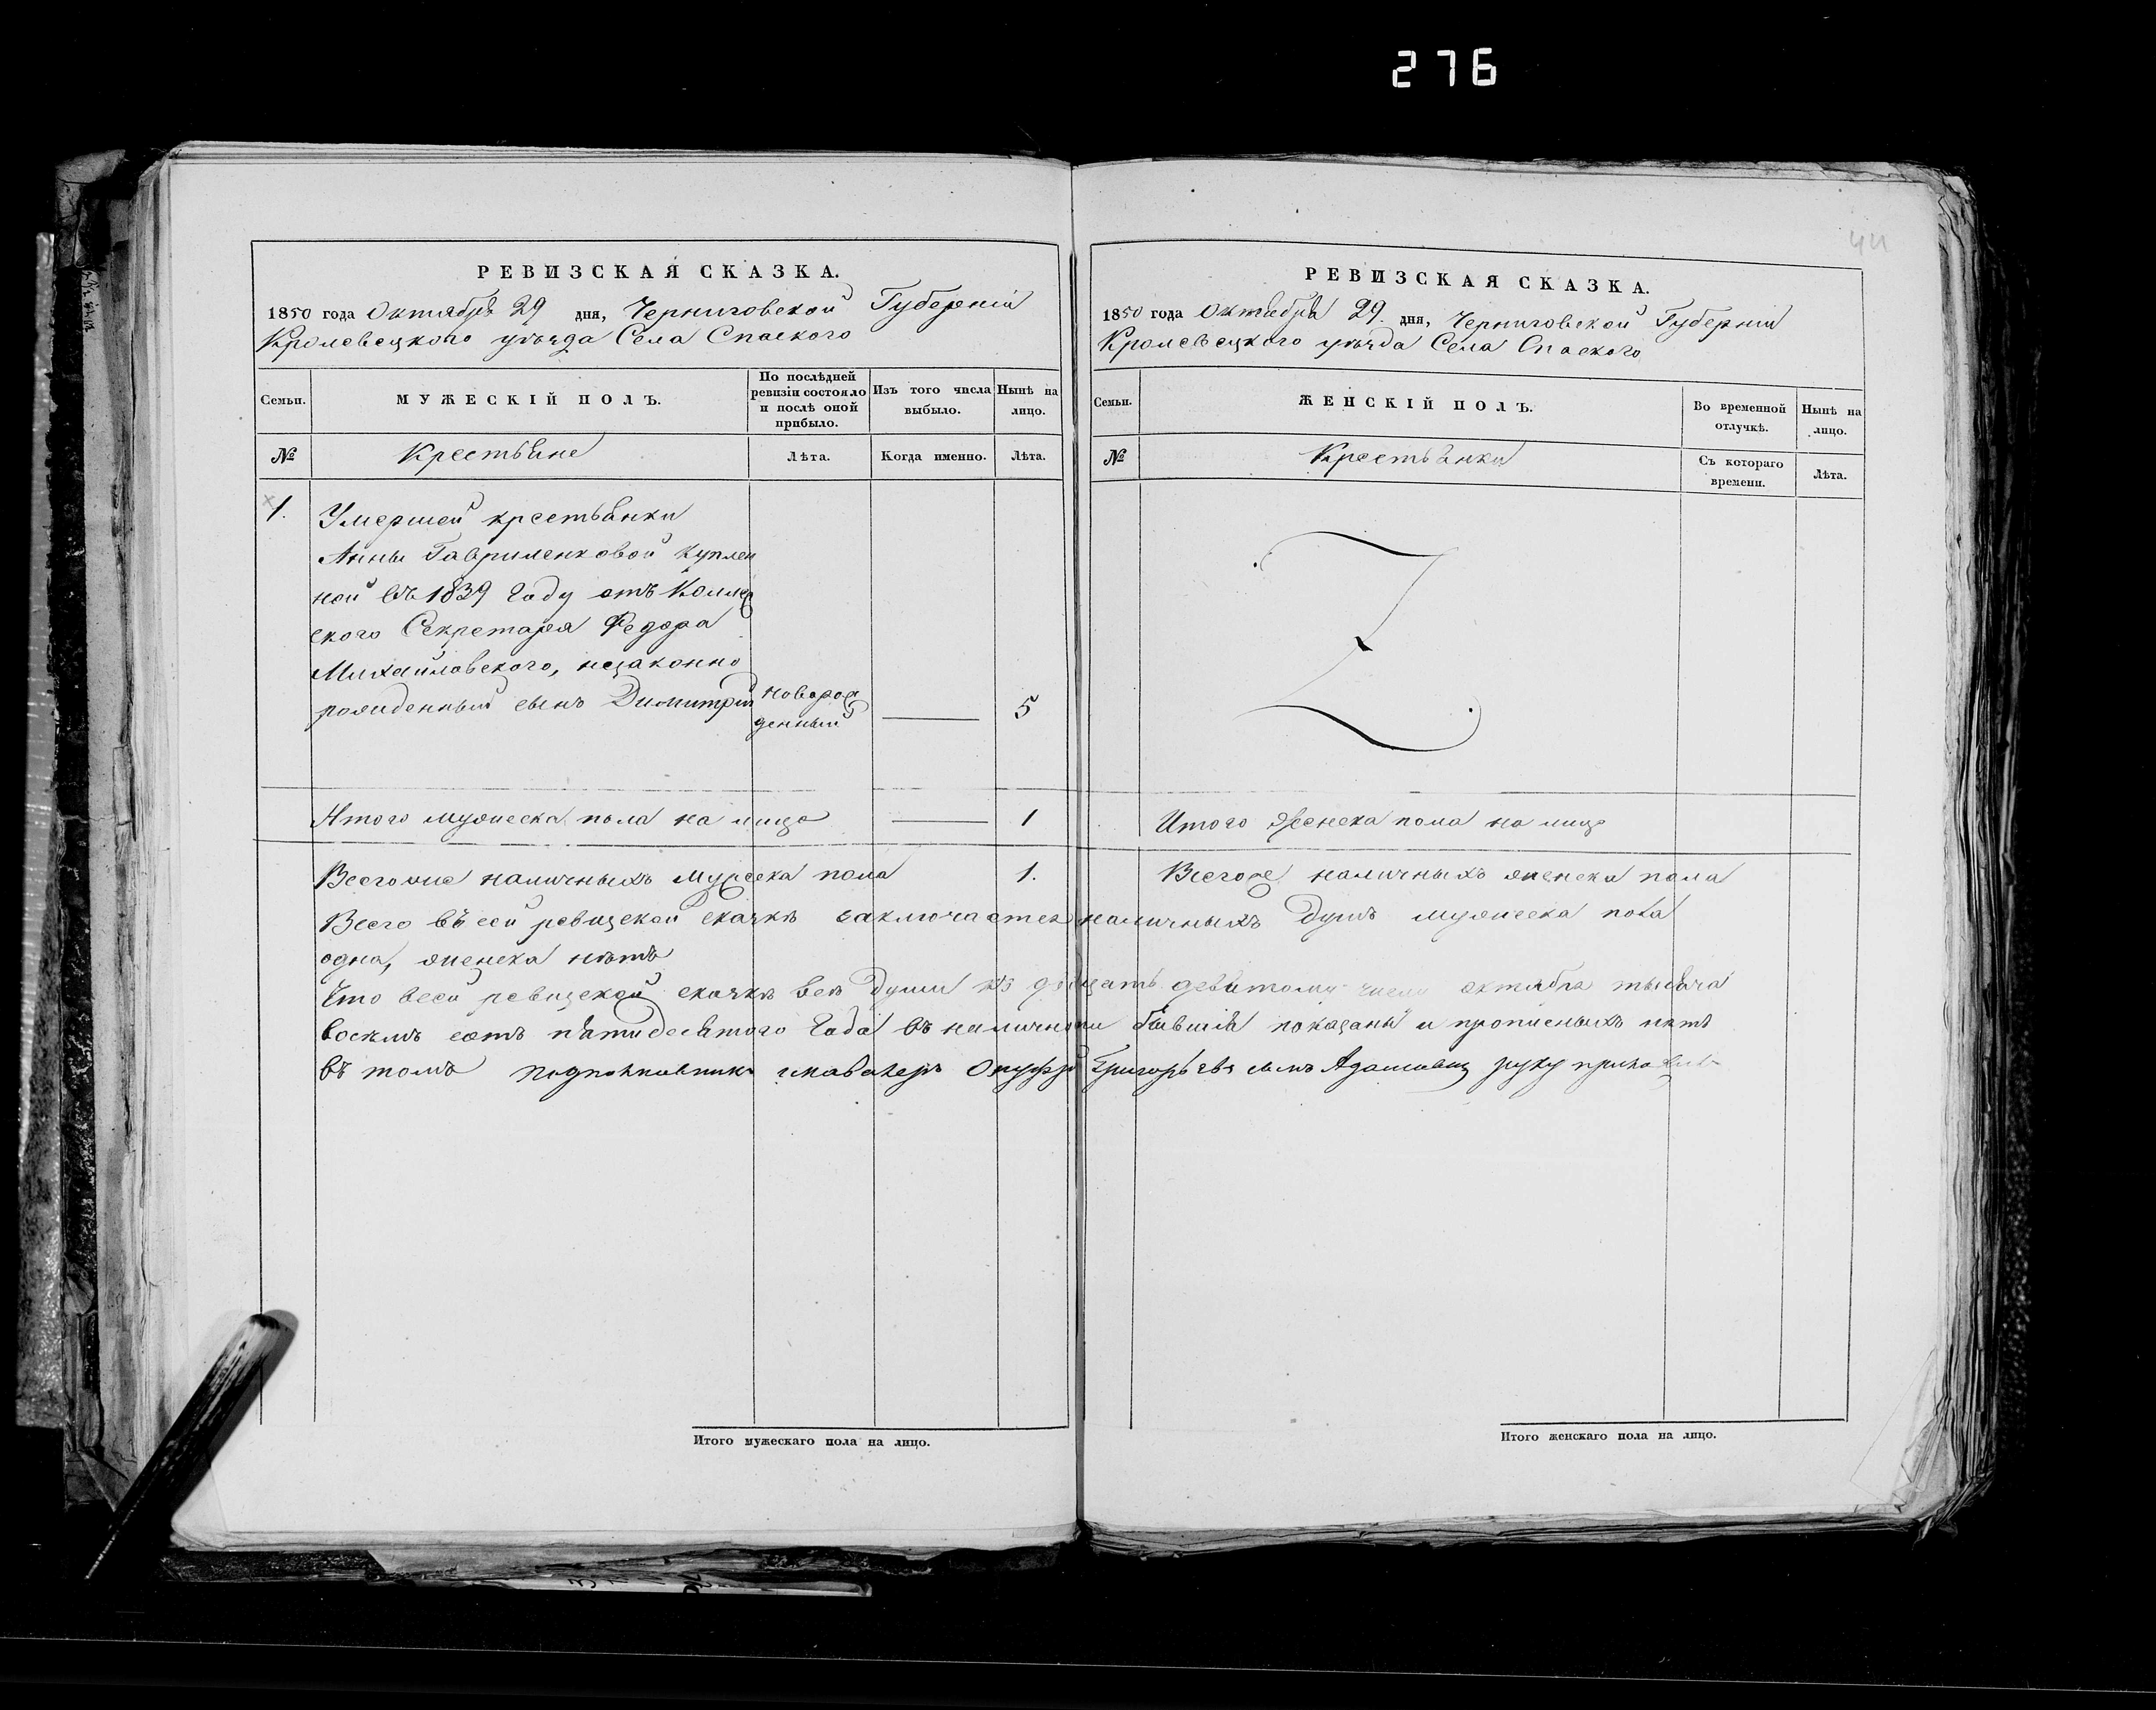 276
44
РЕВИЗСКАЯ СКАЗКА.
1850 года Октября 29 дня, Черниговской Губерніи
Кролевецкого уѣзда Села Спаского
Семьи.
МУЖЕСКІЙ ПОЛЪ.
По послѣдней ревизіи состояло и послѣ оной прибыло.
Изъ того числа выбыло.
Нынѣ на лицо.
№
Крестьяне
Лѣта.
Когда именно.
Лѣта.
1. Умершей крестьянки
Анны Гавриленковой куплен
ной въ 1839 году отъ Коллеж
ского Секретаря Федора
Михайловского, незаконно
рожденный сынъ Димитрій новорож 5
денный
Итого мужеска пола на лицо 1
Всегоже наличныхъ мужеска пола 1.
РЕВИЗСКАЯ СКАЗКА.
1850 года Октября 29. дня, Черниговской Губерніи
Кролевецкого уѣзда Села Спаского
Семьи.
ЖЕНСКІЙ ПОЛЪ.
Во временной отлучкѣ.
Нынѣ на лицо.
№
Крестьянки
Съ котораго времени.
Лѣта.
Итого женска пола на лицо
Всегоже наличныхъ женска пола
Всего въ сей ревизской сказкѣ заключается наличныхъ душъ мужеска пола
одна, женска нѣтъ
Что всей ревизской сказкѣ всѣ души къ двадцать девятому числу октября тысяча
восемь сотъ пятидесятого года въ наличности бывшія показаны и прописныхъ нѣтъ
въ томъ подполковникъ и кавалеръ Онуфрій Григорьевъ сынъ Адамович руку приложилъ
Итого мужескаго пола на лицо.
Итого женскаго пола на лицо.